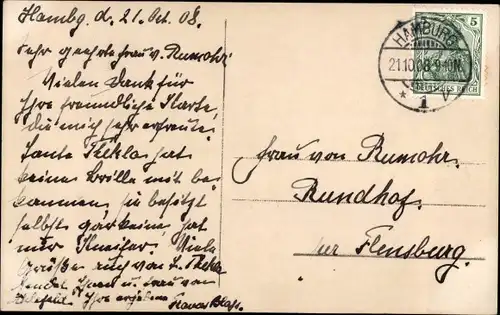 Hambg. d. 21. Oct. 08.
Sehr geehrte Frau v. Rumohr!
Vielen Dank für
Ihre freundliche Karte,
die mich sehr erfreute.
Tante Thekla hat
keine Brille mit be-
kommen, sie besitzt
selbst gar keine, hat
nur Kneifer. Viele
Grüße auch von T. Thekla
sendet Ihnen u. Frau von
Ihre ergebene
HAMBURG
21.10.08.9-10N.
* 1 v
5
DEUTSCHES REICH
Frau von Rumohr.
Rundhof.
per Flensburg.